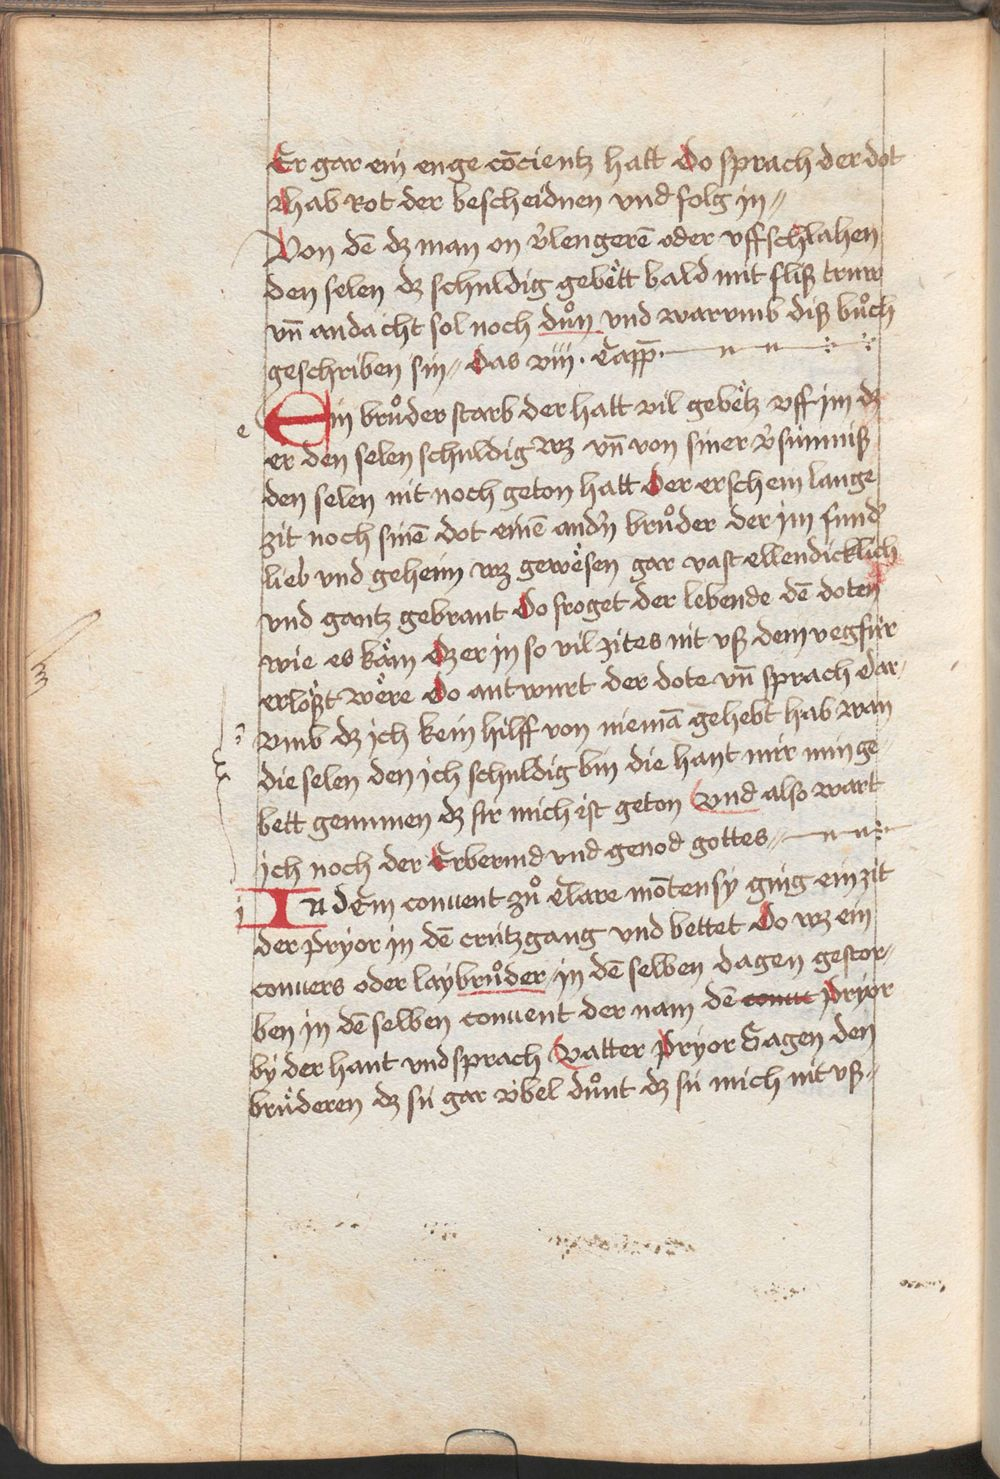 Er gar ein enge cōcientz hatt Do sprach der dot
Hab Rot der bescheidnen vnd folg in //
Von dē dz man on v̉lengerē oder vffschlahen
den selen dz schuldig gebëtt bald mit fliß truw
vn̄ andacht sol noch důn vnd warvmb diß bůch
geschriben sin // Das viij. Capp̄.
Ein brůder starb der hatt vil gebëtz vff im dz
e
er den selen schuldig wz vn̄ von siner v̉sumniß
den selen nit noch geton hatt Der erschein lange
zit noch sinē dot einē and̉n brůder der im sund̉
lieb vnd geheim wz gewësen gar vast ellendicklich
vnd gantz gebrant Do froget der lebende dē doten
wie es käm dz er in so vil zites nit vß dem vegfur
erlößt wëre Do antwurt der dote vn̄ sprach Dar-
vmb dz ich kein hilff von niemā gehebt hab wan
die selen den ich schuldig bin die hant mir min ge-
bett genumen dz fir mich ist geton Vnd also wart
ich noch der Erbermd vnd genod gottes //
In dem conuent zů Clare mōtensy ging ein zit
i
der pryor in dē crutzgang vnd bettet Do wz ein
conuers oder laybrůder in dē selben dagen gestor-
ben in dē selben conuent der nam dē conue pryor
by der hant vnd sprach Vatter pryor Sagen den
brüderen dz su gar v̉bel důnt dz su mich nit vß //